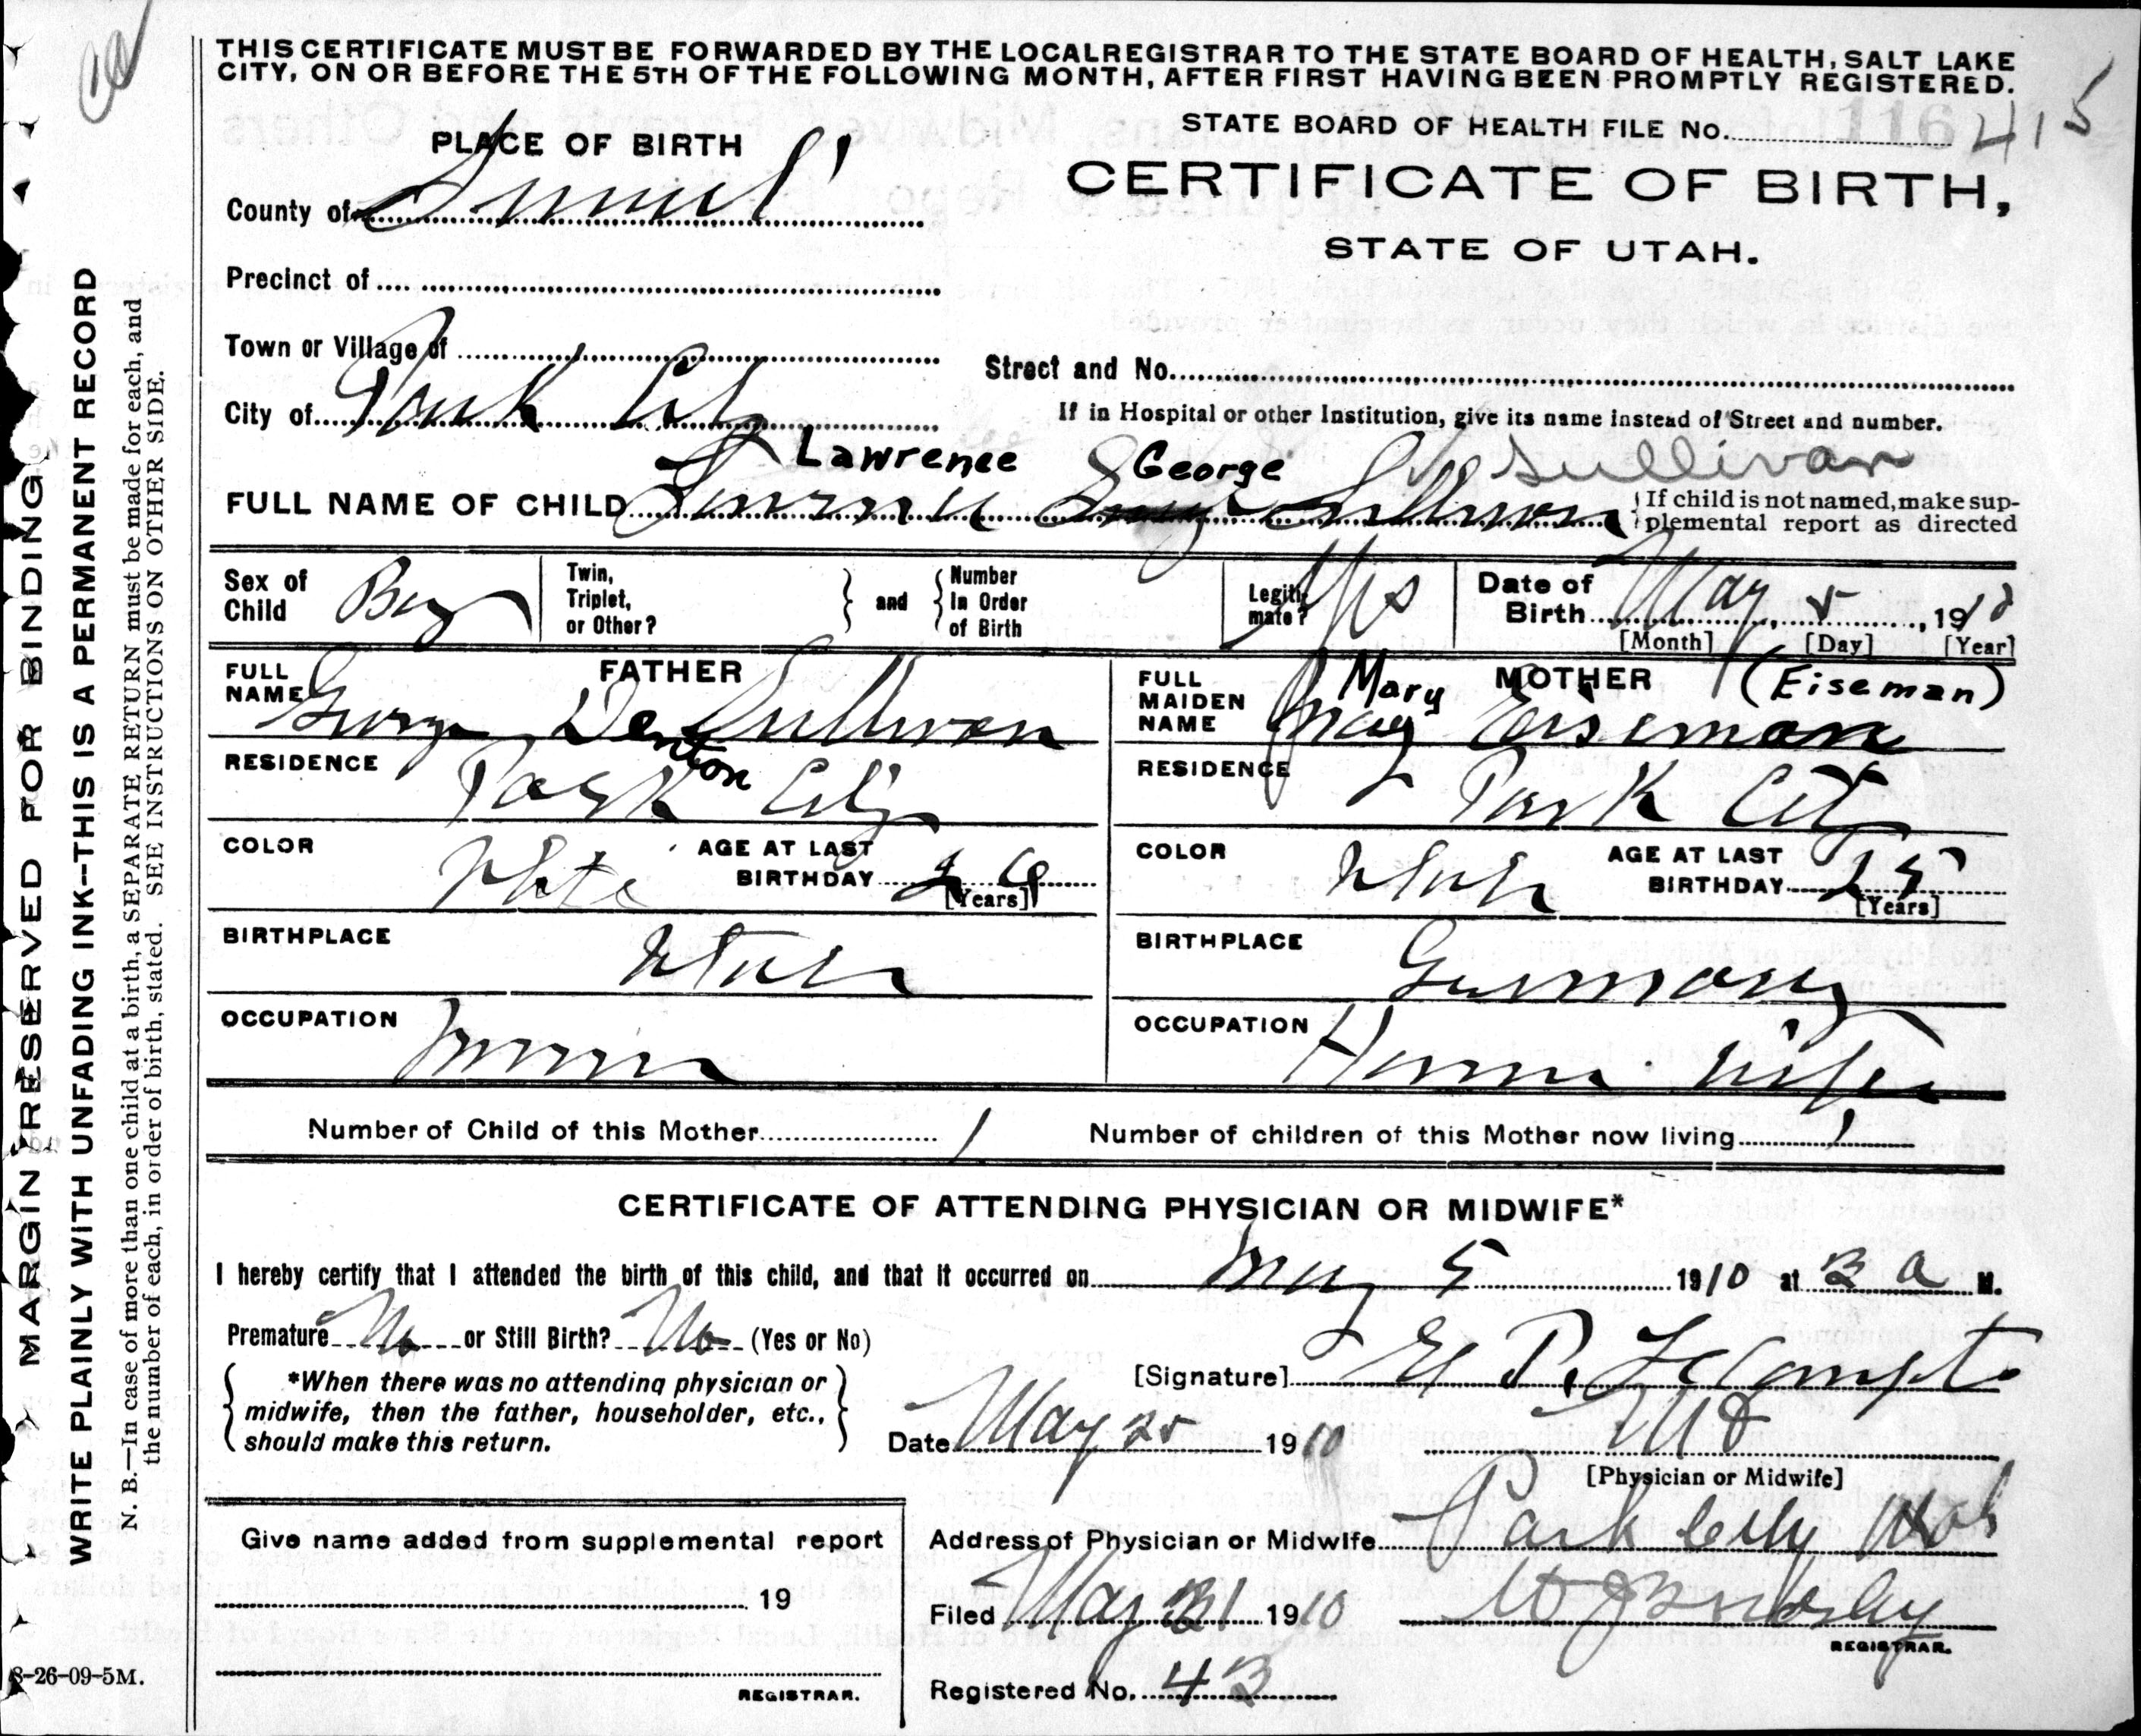 THIS CERTIFICATE MUST BE FORWARDED BY THE LOCAL REGISTRAR TO THE STATE BOARD OF HEALTH, SALT LAKE
CITY, ON OR BEFORE THE 5TH OF THE FOLLOWING MONTH, AFTER FIRST HAVING BEEN PROMPTLY REGISTERED.
STATE BOARD OF HEALTH FILE No. 116 415
PLACE OF BIRTH
CERTIFICATE OF BIRTH,
STATE OF UTAH.
County of Summit
Precinct of
Town or Village of
Street and No.
City of Park City
If in Hospital or other Institution, give its name instead of Street and number.
Lawrence George Sullivan
FULL NAME OF CHILD Lawrence George Sullivan
{If child is not named, make sup-
plemental report as directed
Sex of Child Boy
Twin, Triplet, or Other?
and
Number In Order of Birth
Legiti-mate? Yes
Date of Birth May 5, 1910
[Month] [Day] [Year]
FATHER
FULL NAME George Denton Sullivan
RESIDENCE Park City
COLOR White
AGE AT LAST BIRTHDAY 26
[Years]
BIRTHPLACE Utah
OCCUPATION Miner
MOTHER
FULL MAIDEN NAME Mary May Eiseman (Eiseman)
RESIDENCE Park City
COLOR White
AGE AT LAST BIRTHDAY 25
[Years]
BIRTHPLACE Germany
OCCUPATION House wife
Number of Child of this Mother 1
Number of children of this Mother now living 1
CERTIFICATE OF ATTENDING PHYSICIAN OR MIDWIFE*
I hereby certify that I attended the birth of this child, and that it occurred on May 5 1910 at 3 a M.
Premature No or Still Birth? No (Yes or No)
*When there was no attending physician or
midwife, then the father, householder, etc.,
should make this return.
[Signature] E P. LeCompte
Date May 25 1910
M D
[Physician or Midwife]
Give name added from supplemental report
19
REGISTRAR.
Address of Physician or Midwife Park City Utah
Filed May 31 1910
REGISTRAR.
Registered No. 43
8-26-09-5M.
MARGIN RESERVED FOR BINDING
WRITE PLAINLY WITH UNFADING INK—THIS IS A PERMANENT RECORD
N. B.—In case of more than one child at a birth, a SEPARATE RETURN must be made for each, and
the number of each, in order of birth, stated. SEE INSTRUCTIONS ON OTHER SIDE.